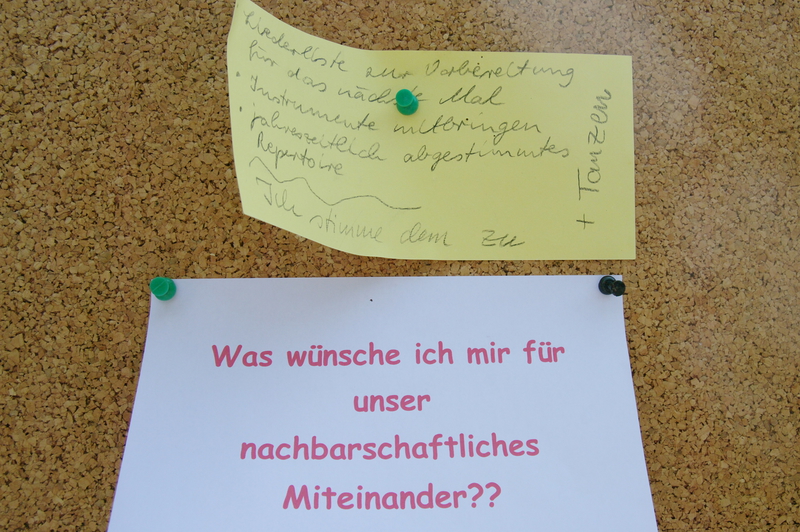 Liederliste zur Vorbereitung
für das nächste Mal
• Instrumente mitbringen
• jahreszeitlich abgestimmtes
Repertoire
Ich stimme dem zu
+ Tanzen
Was wünsche ich mir für
unser
nachbarschaftliches
Miteinander??